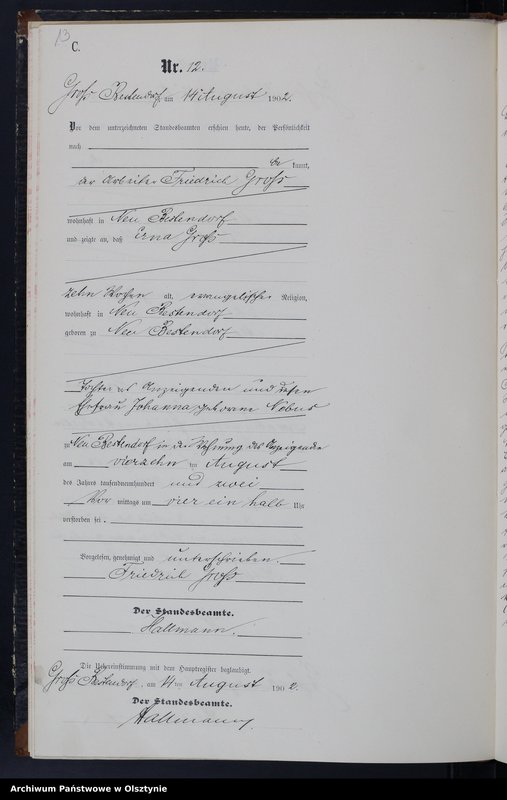 13
C.
Nr. 12.
Groß Bestendorf am 14 August 1902.
Vor dem unterzeichneten Standesbeamten erschien heute, der Persönlichkeit
nach
kannt,
der Arbeiter Friedrich Groß
wohnhaft in Neu Bestendorf
und zeigte an, daß Erna Groß
zehn Wochen alt, evangelischer Religion,
wohnhaft in Neu Bestendorf
geboren zu Neu Bestendorf
Tochter des Anzeigenden und dessen
Ehefrau Johanna geborene
zu Neu Bestendorf in der Wohnung des Anzeigenden
am vierzehn ten August
des Jahres tausendneunhundert und zwei
Vor mittags um vier ein halb Uhr
verstorben sei.
Vorgelesen, genehmigt und unterschrieben.
Friedrich Groß
Der Standesbeamte.
Hallmann.
Die Uebereinstimmung mit dem Hauptregister beglaubigt.
Groß Bestendorf, am 14ten August 1902.
Der Standesbeamte.
Hallmann
Archiwum Państwowe w Olsztynie